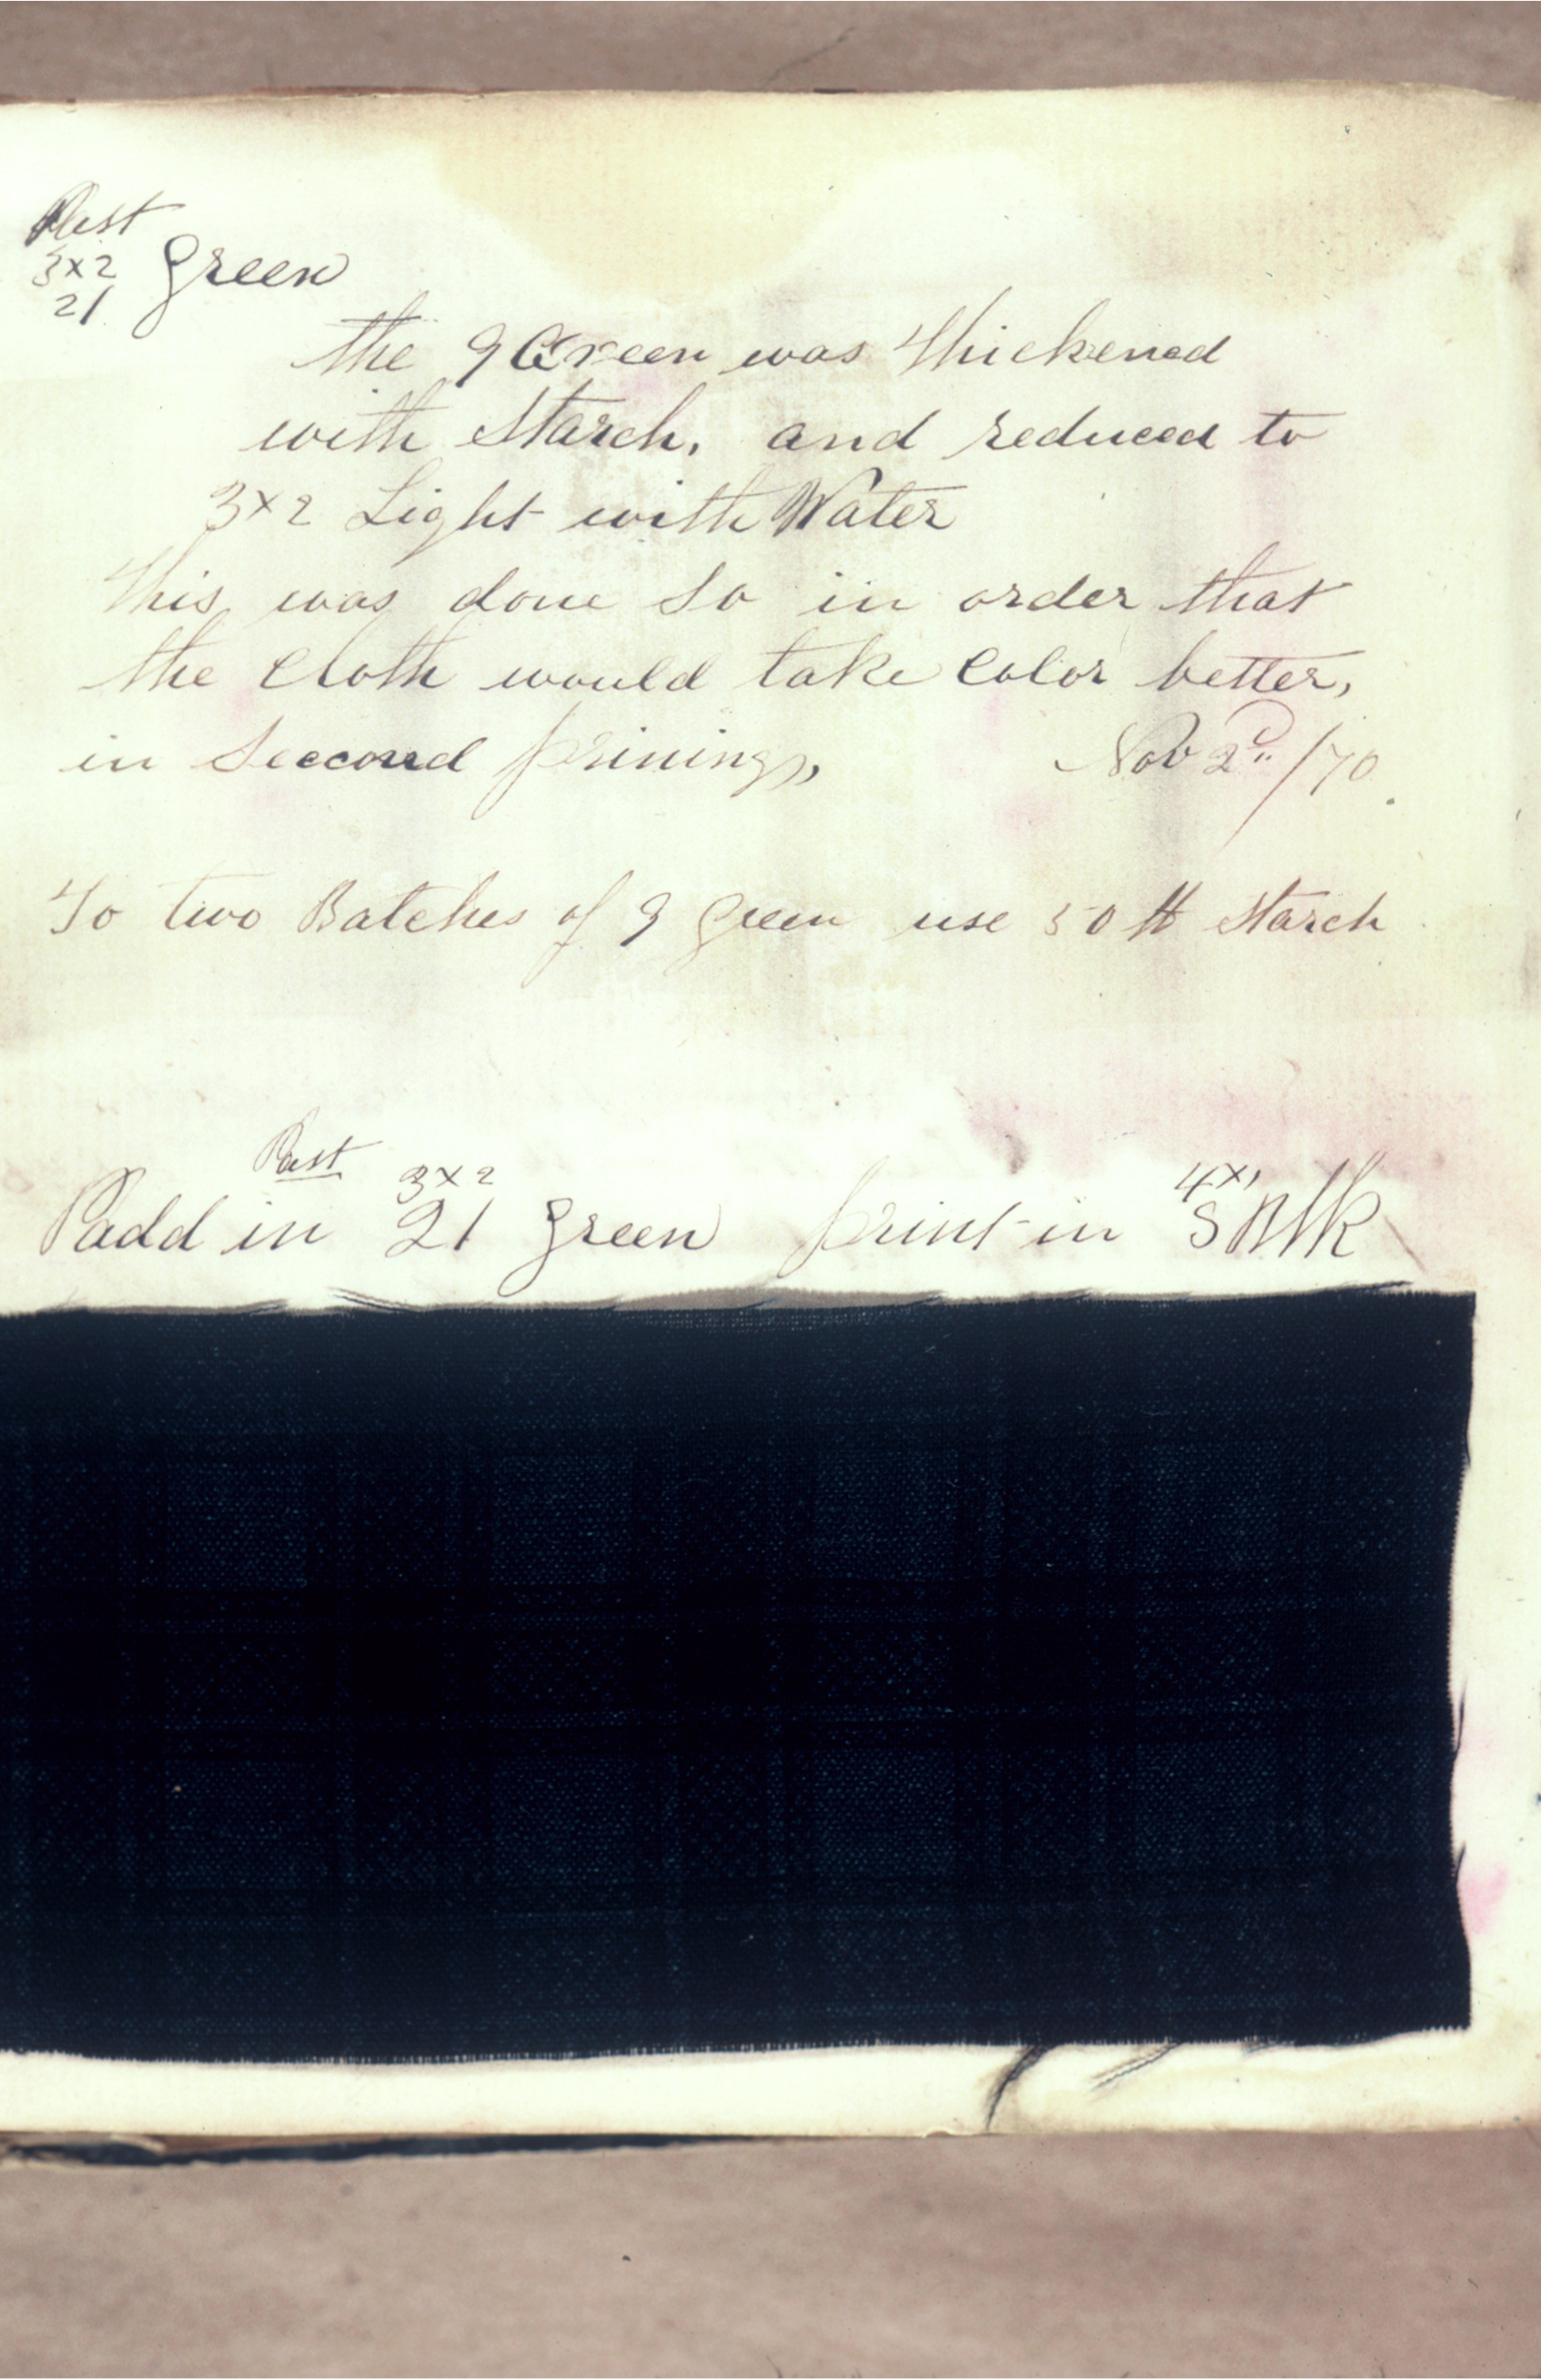 Past
3x2 Green
21
the 9 Green was thickened
with Starch, and reduced to
3x2 Light with Water
This was done So in order that
the Cloth would take Color better,
in Seccond prining, Nov 2d /70.
To two Batches of 9 Green use 50 ℔ Starch
Past 3x2 4x1
Padd in 21 Green print in S Blk